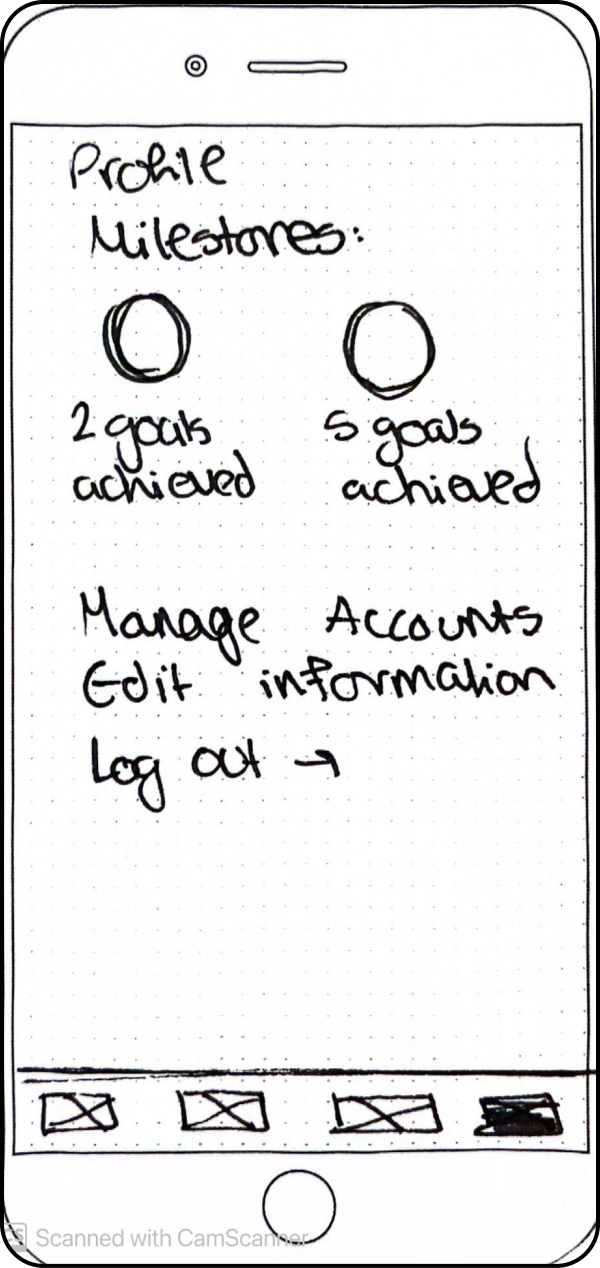 Profile
Milestones:
2 goals achieved
5 goals achieved
Manage Accounts
Edit information
Log out →
Scanned with CamScanner